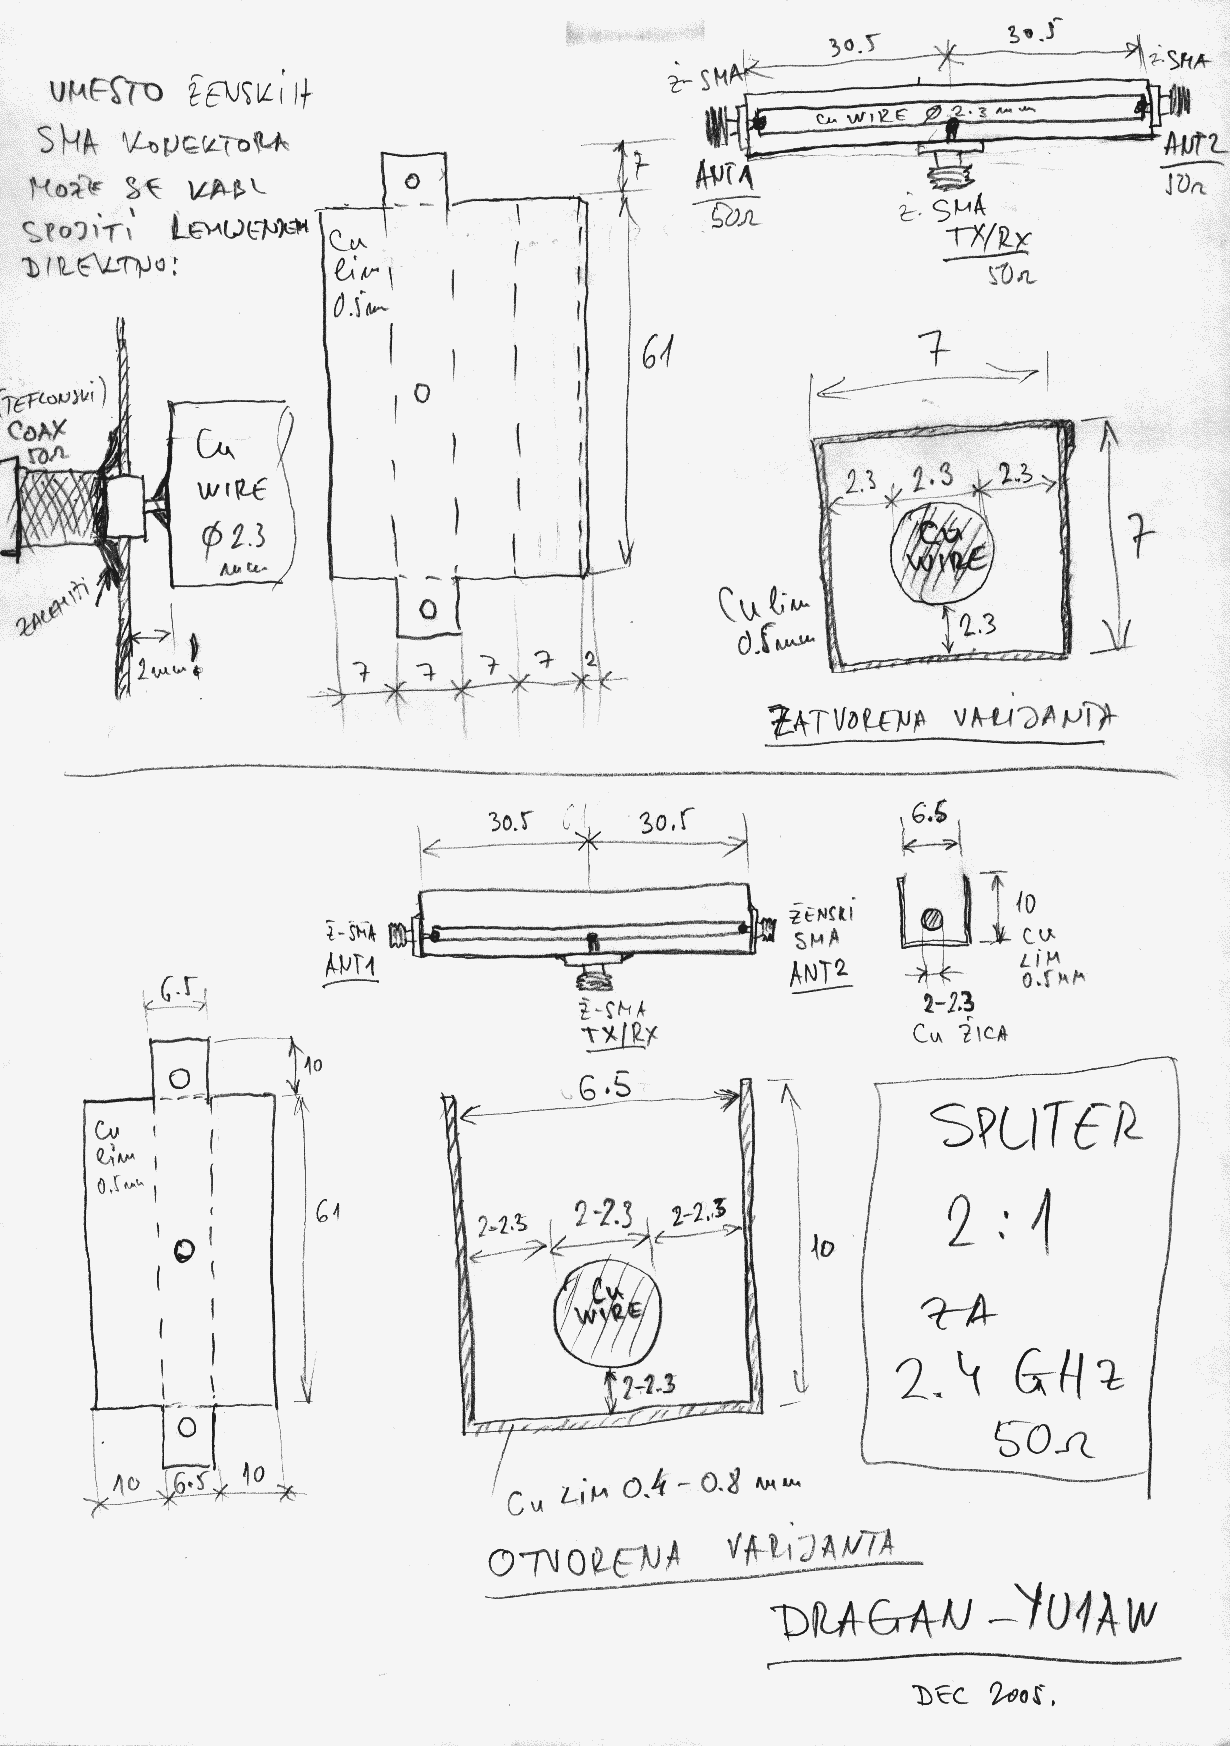 UMESTO ŽENSKIH
SMA KONEKTORA
MOŽE SE KABL
SPOJITI LEMLJENJEM
DIREKTNO:
30.5
30.5
Ž-SMA
Ž-SMA
Cu WIRE Ø 2.3 mm
ANT1
50Ω
ANT2
50Ω
Ž-SMA
TX/RX
50Ω
7
Cu
lim
0.5mm
61
7
7
7
7
2
(TEFLONSKI)
COAX
50Ω
Cu
WIRE
Ø 2.3
mm
ZALEMITI
2mm!
7
2.3
2.3
2.3
Cu
WIRE
7
2.3
Cu lim
0.5mm
ZATVORENA VARIJANTA
30.5
30.5
Ž-SMA
ANT1
ŽENSKI
SMA
ANT2
Ž-SMA
TX/RX
6.5
10
CU
LIM
0.5MM
2-2.3
Cu ŽICA
6.5
10
Cu
lim
0.5mm
61
10
6.5
10
6.5
2-2.3
2-2.3
2-2.3
Cu
WIRE
2-2.3
10
Cu LIM 0.4-0.8 mm
OTVORENA VARIJANTA
SPLITER
2:1
ZA
2.4 GHz
50Ω
DRAGAN-YU1AW
DEC 2005.